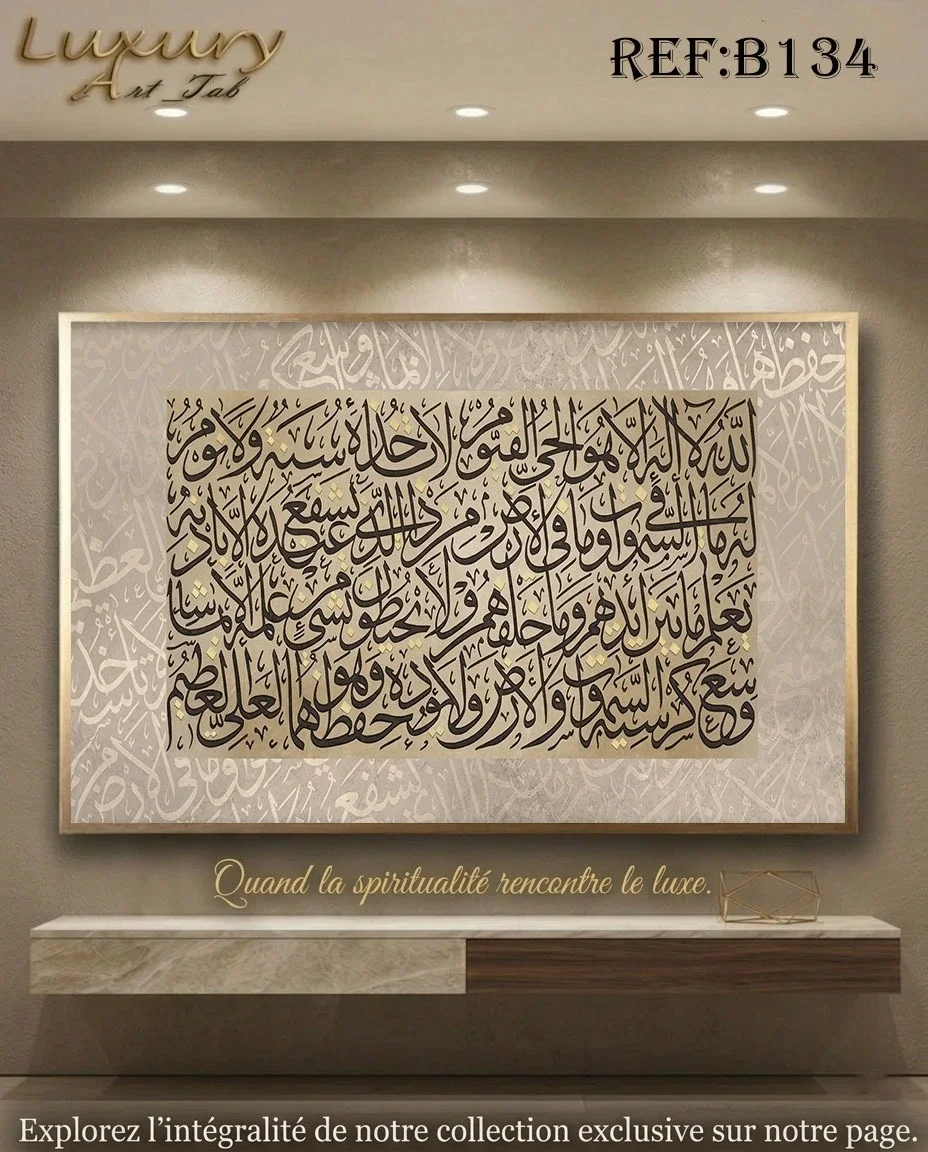 Luxury
Art_Tab
REF:B134
الله لا إله إلا هو الحي القيوم لا تأخذه سنة ولا نوم
له ما في السموات وما في الأرض من ذا الذي يشفع عنده إلا بإذنه
يعلم ما بين أيديهم وما خلفهم ولا يحيطون بشيء من علمه إلا بما شاء
وسع كرسيه السموات والأرض ولا يؤده حفظهما وهو العلي العظيم
Quand la spiritualité rencontre le luxe.
Explorez l’intégralité de notre collection exclusive sur notre page.